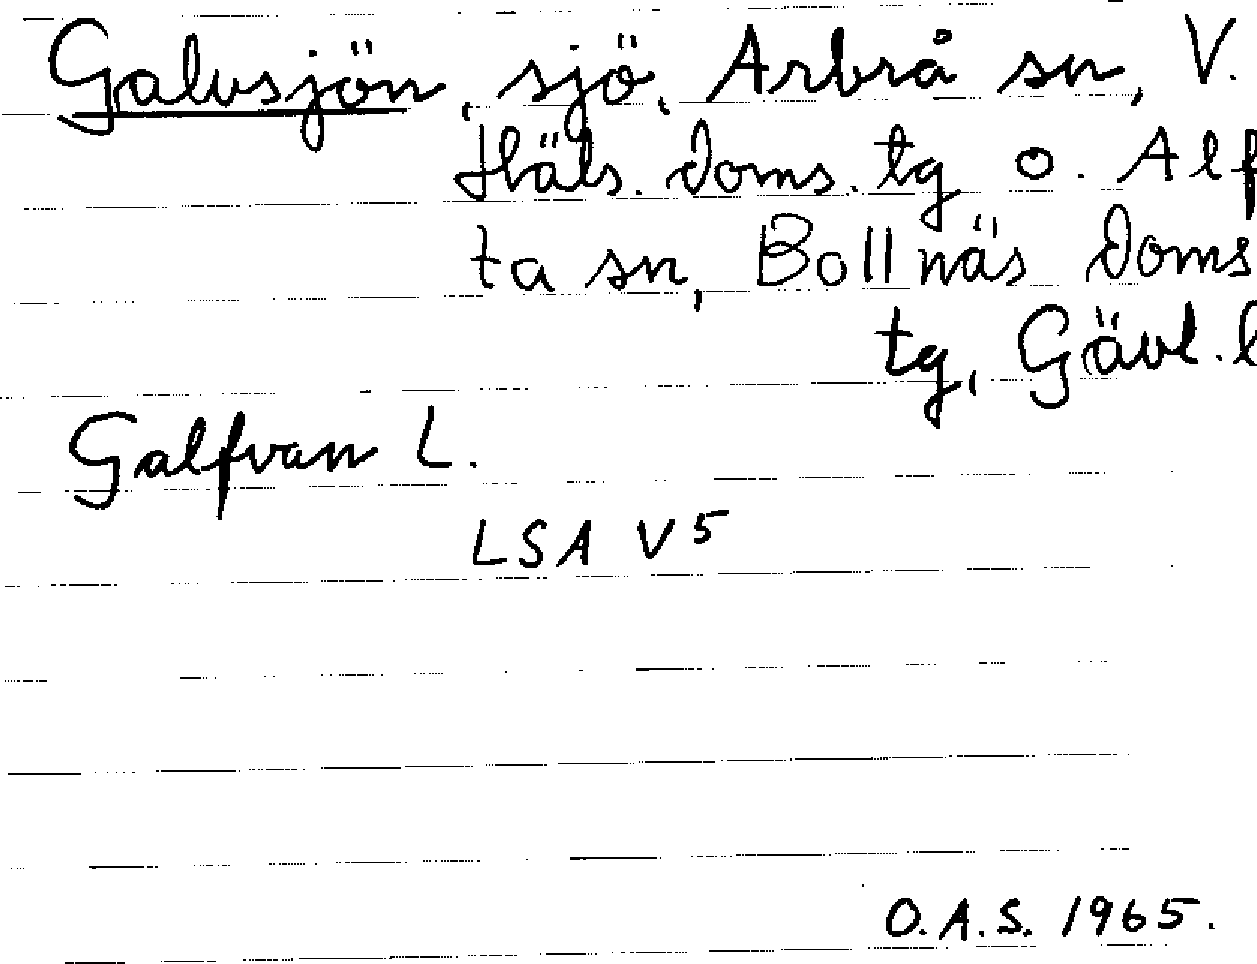 Galvsjön, sjö, Arbrå sn, V.
Häls. doms. tg o. Alf
ta sn, Bollnäs doms
tg, Gävl. l
Galfvan L.
LSA V 5
O.A.S. 1965.